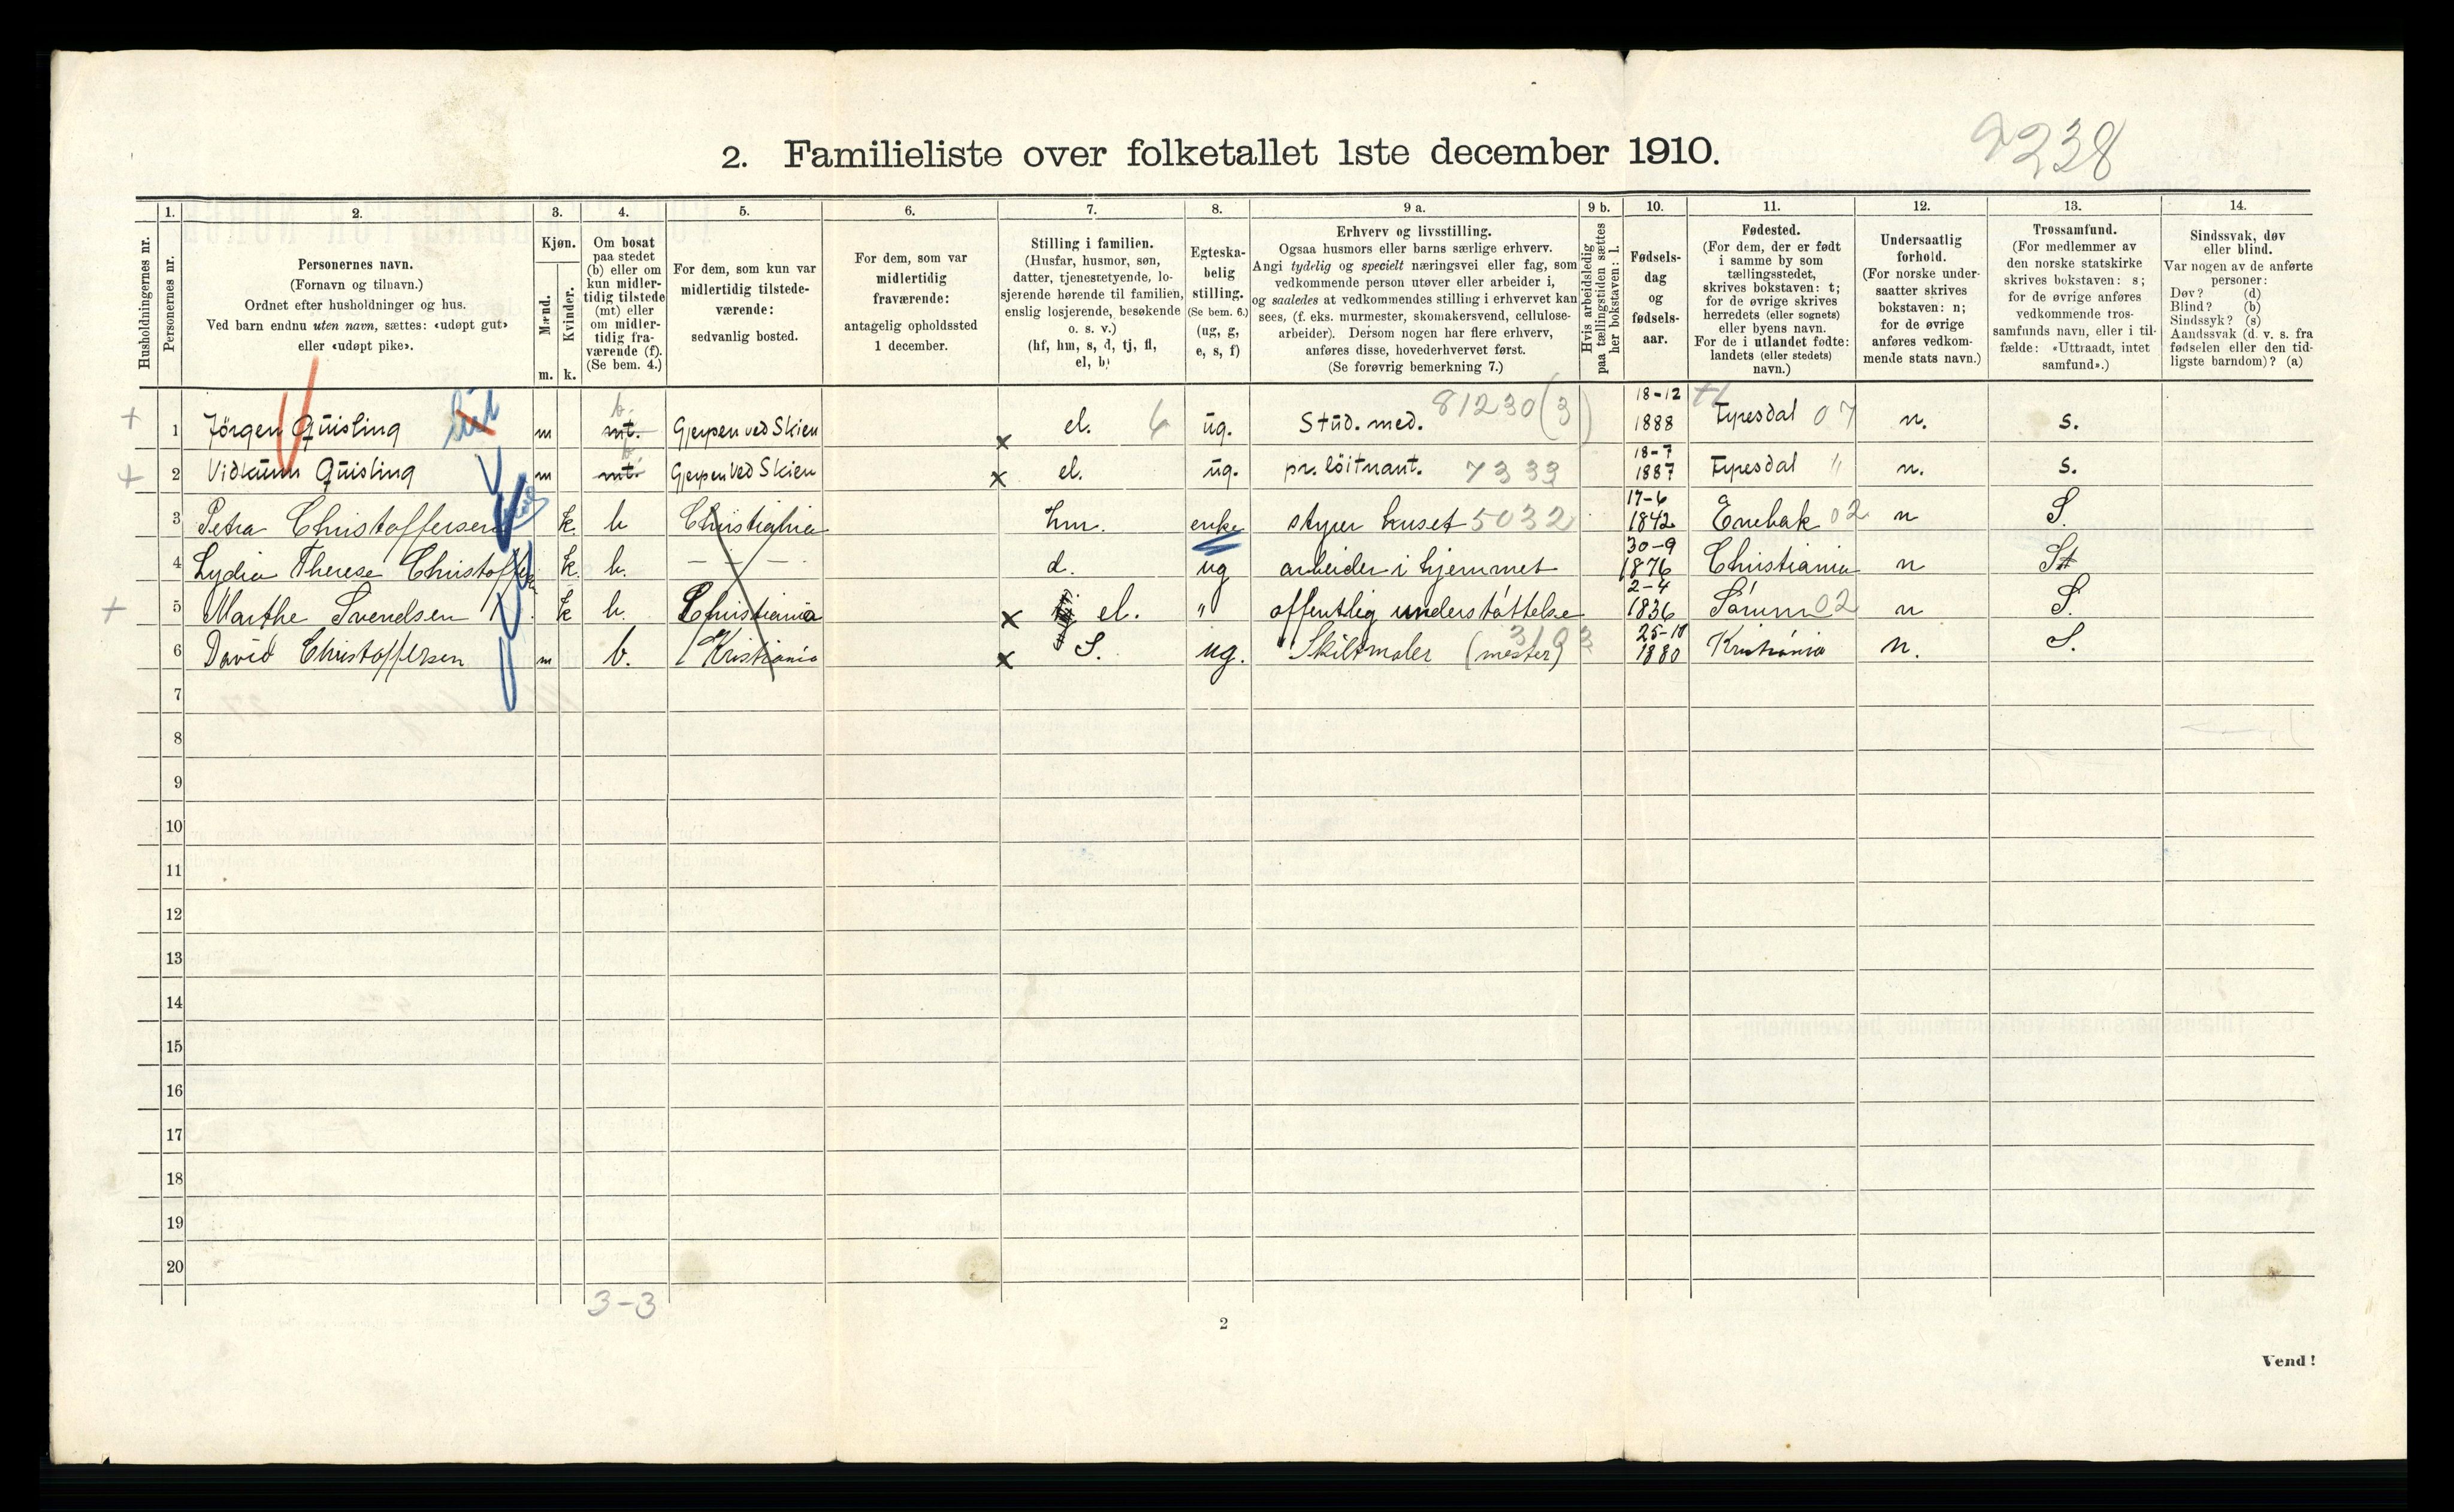 9238
2. Familieliste over folketallet 1ste december 1910.
Husholdningernes nr.
1.
Personernes nr.
2.
Personernes navn.
(Fornavn og tilnavn.)
Ordnet efter husholdninger og hus.
Ved barn endnu uten navn, sættes: «udøpt gut»
eller «udøpt pike».
3.
Kjøn.
Mænd.
Kvinder.
m. k.
4.
Om bosat
paa stedet
(b) eller om
kun midler-
tidig tilstede
(mt) eller
om midler-
tidig fra-
værende (f).
(Se bem. 4.)
5.
For dem, som kun var
midlertidig tilstede-
værende:
sedvanlig bosted.
6.
For dem, som var
midlertidig
fraværende:
antagelig opholdssted
1 december.
7.
Stilling i familien.
(Husfar, husmor, søn,
datter, tjenestetyende, lo-
sjerende hørende til familien,
enslig losjerende, besøkende
o. s. v.)
(hf, hm, s, d, tj, fl,
el, b)
8.
Egteska-
belig
stilling.
(Se bem. 6.)
(ug, g,
e, s, f)
9 a.
Erhverv og livsstilling.
Ogsaa husmors eller barns særlige erhverv.
Angi tydelig og specielt næringsvei eller fag, som
vedkommende person utøver eller arbeider i,
og saaledes at vedkommendes stilling i erhvervet kan
sees, (f. eks. murmester, skomakersvend, cellulose-
arbeider). Dersom nogen har flere erhverv,
anføres disse, hovederhvervet først.
(Se forøvrig bemerkning 7.)
9 b.
Hvis arbeidsledig
paa tællingstiden sættes
her bokstaven: l.
10.
Fødsels-
dag
og
fødsels-
aar.
11.
Fødested.
(For dem, der er født
i samme by som
tællingsstedet,
skrives bokstaven: t;
for de øvrige skrives
herredets (eller sognets)
eller byens navn.
For de i utlandet fødte:
landets (eller stedets)
navn.)
12.
Undersaatlig
forhold.
(For norske under-
saatter skrives
bokstaven: n;
for de øvrige
anføres vedkom-
mende stats navn.)
13.
Trossamfund.
(For medlemmer av
den norske statskirke
skrives bokstaven: s;
for de øvrige anføres
vedkommende tros-
samfunds navn, eller i til-
fælde: «Uttraadt, intet
samfund».)
14.
Sindssvak, døv
eller blind.
Var nogen av de anførte
personer:
Døv? (d)
Blind? (b)
Sindssyk? (s)
Aandssvak (d. v. s. fra
fødselen eller den tid-
ligste barndom)? (a)
+ 1 Jörgen Quisling m b. mt. Gjerpen ved Skien x el. 6 ug. Stud. med. 81230 (3) 18-12 1888 Fyresdal 07 n. s.
+ 2 Vidkunn Quisling m b. mt. Gjerpen ved Skien x el. ug. pr. löitnant. 7333 18-7 1887 Fyresdal " n. s.
3 Petra Christoffersen k. b Christiania hm. enke styrer huset 5032 17-6 1842 Enebak 02 n S.
4 Lydia Therese Christoffersen k. b. - " - d. ug arbeider i hjemmet 30-9 1876 Christiania n St
+ 5 Marthe Svendsen k b. Christiania x el. " offentlig understøttelse 2-4 1836 Sørum 02 n S.
6 David Christoffersen m b. Kristiania x S. ug. Skiltmaler (mester) 3193 25-10 1880 Kristiania n. S.
7
8
9
10
11
12
13
14
15
16
17
18
19
20
3-3
2
Vend!